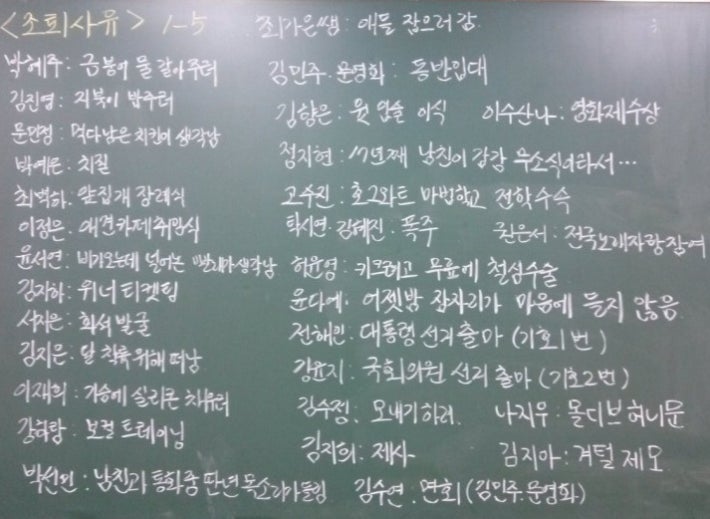 <조퇴사유> 1-5
박혜주: 금붕어 물 갈아주러
김진영: 거북이 밥주러
문민정: 먹다남은 치킨이 생각남
박예은: 치질
최벽하: 앞집개 장례식
이정은: 애견카페 취임식
윤서연: 비가오는데 널어논 빨래가 생각남
김지하: 위너 티켓팅
서지은: 화석 발굴
김지은: 달 착륙 위해 떠남
이재희: 가슴에 실리콘 채우러
강하람: 보컬 트레이닝
박선민: 남친과 통화중 딴년 목소리가 들림
최가은쌤: 애들 잡으러 감
김민주.문영화: 동반입대
김향은: 윗 입술 이식 이수산나: 영화제수상
정지현: 17년째 남친이 감감 무소식이라서…
고수진: 호그와트 마법학교 전학수속
탁시연.김혜진: 폭주 권은서: 전국노래자랑참여
허윤영: 키크려고 무릎에 철심수술
윤다예: 어젯밤 잠자리가 마음에 들지 않음
전해인: 대통령 선거 출마 (기호1번)
강윤지: 국회의원 선거 출마 (기호2번)
김수정: 모내기하러. 나지우: 몰디브 허니문
김지희: 제사 김지아: 겨털 제모
김수연: 면회 (김민주.문영화)